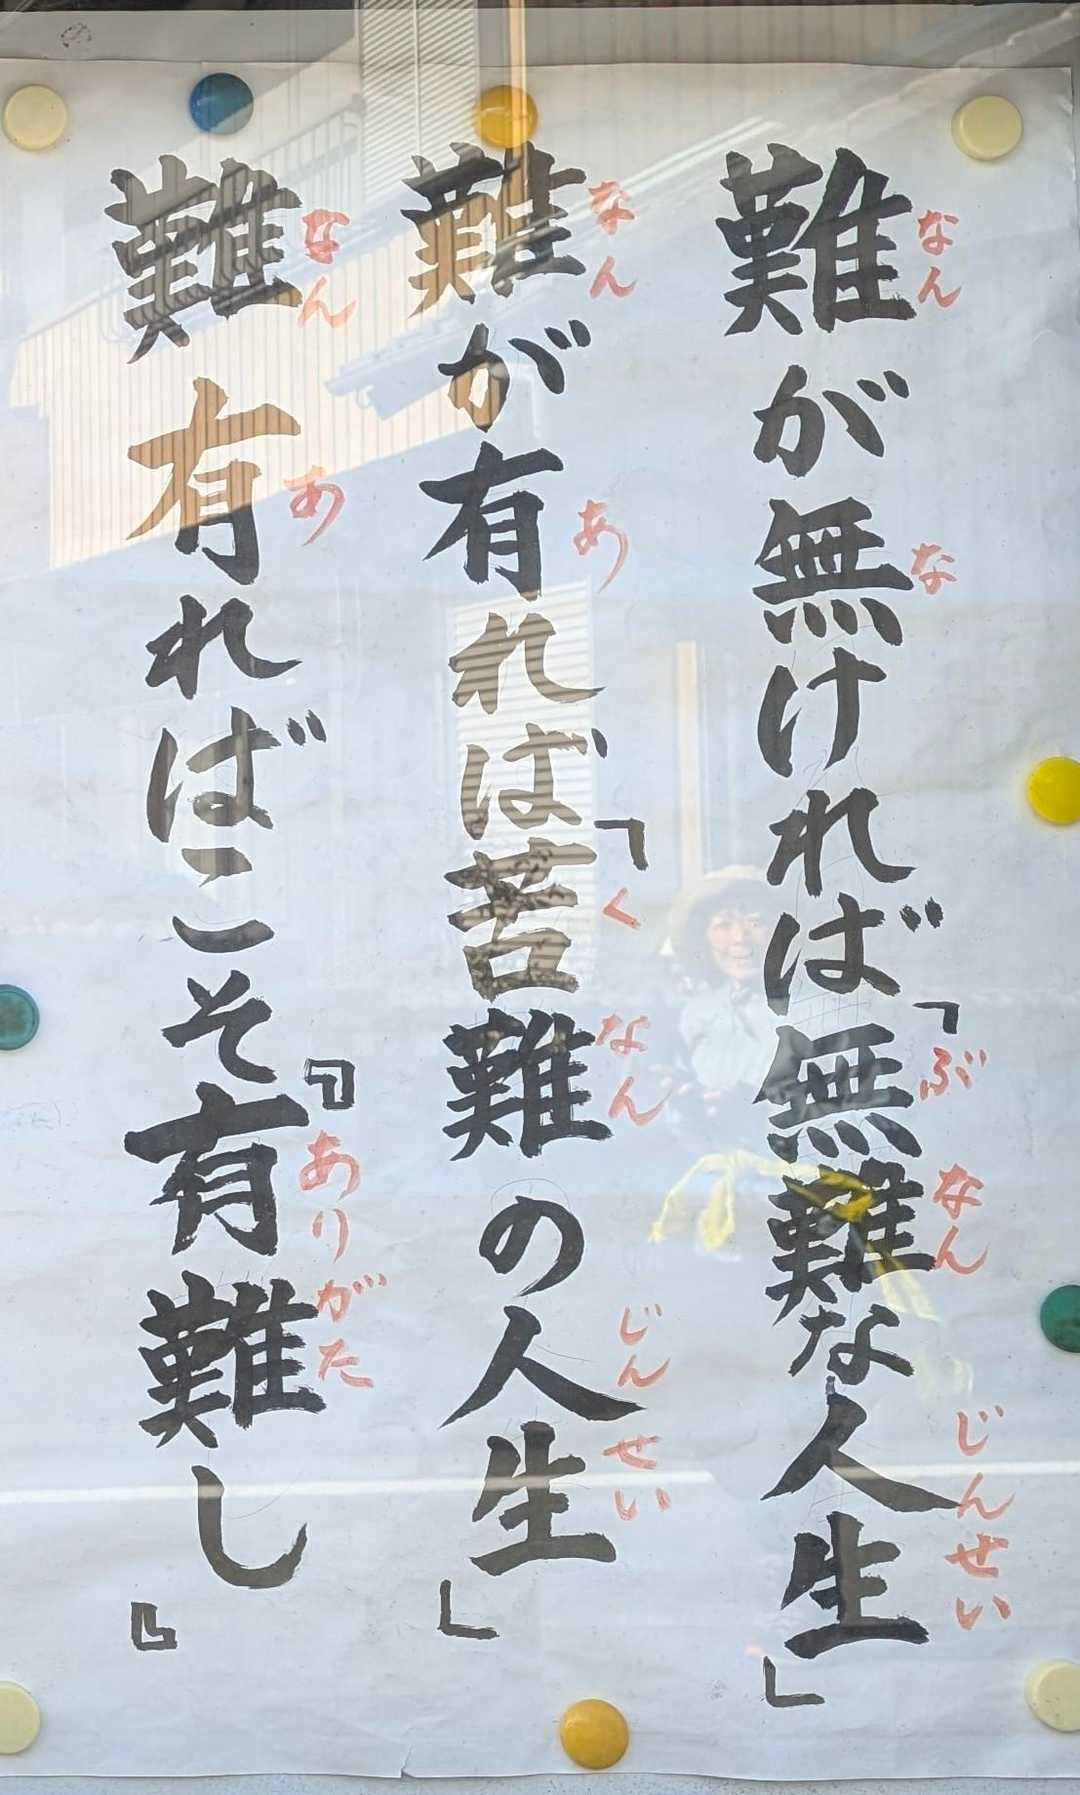 難が無ければ「無難な人生」
難が有れば「苦難の人生」
難有ればこそ『有難し』
なん
な
ぶ
なん
じんせい
なん
あ
く
なん
じんせい
なん
あ
ありがた